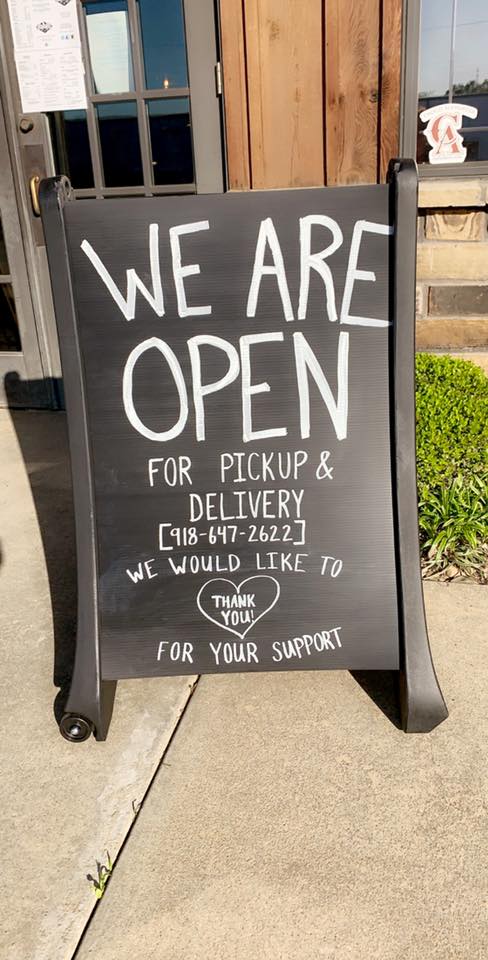 WE ARE
OPEN
FOR PICKUP &
DELIVERY
[918-647-2622]
WE WOULD LIKE TO
THANK
YOU!
FOR YOUR SUPPORT